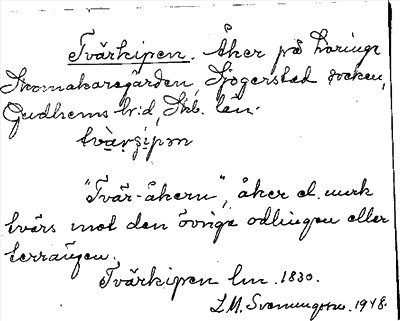 Tvärkipen. Åker på Karings
Skomakaregården, Sjogerstad socken,
Gudhems hrd, Skb. län.
tvàrʂipən
"Tvär-åkern", åker el. mark
tvärs mot den övriga odlingen eller
terrängen.
Tvärkipen lm. 1830.
L.M. Svenungsson. 1948.